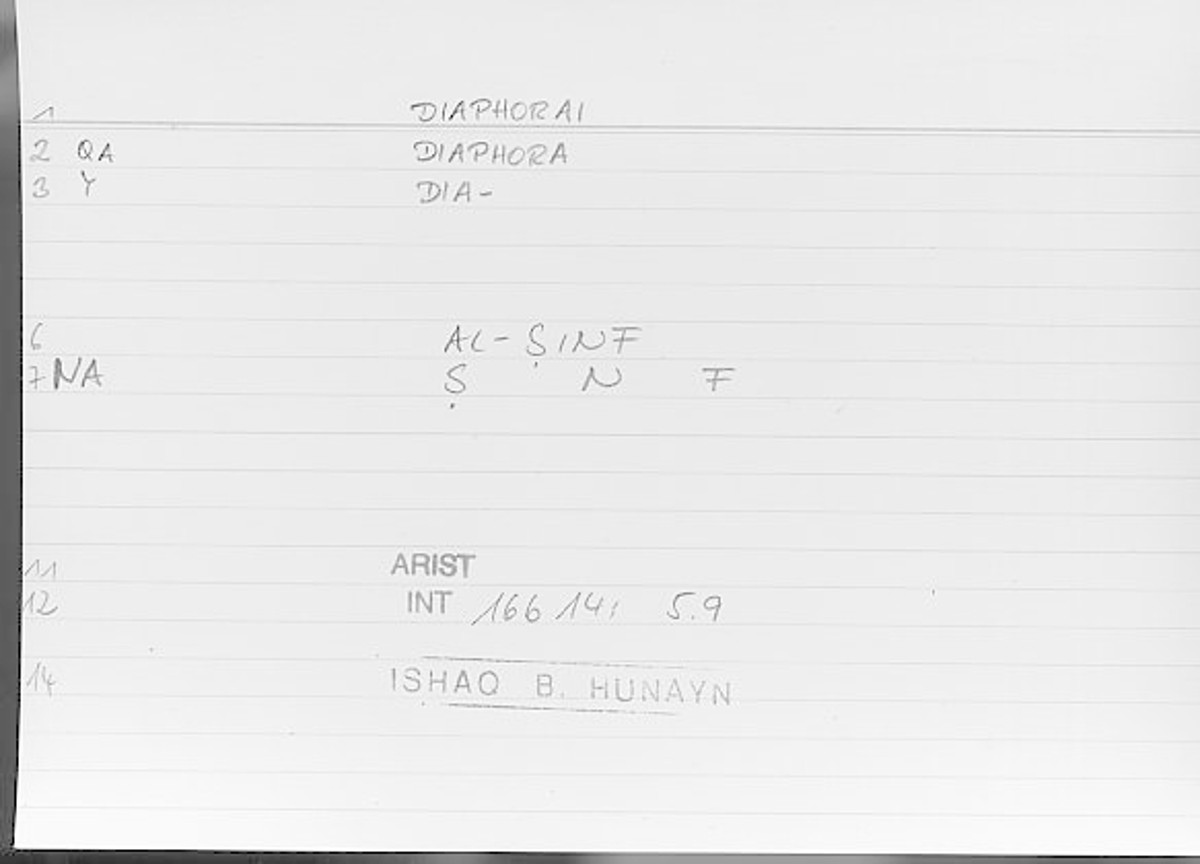 1 DIAPHORAI
2 QA DIAPHORA
3 Y DIA-
6 AL-ṢINF
7 NA Ṣ N F
11 ARIST
12 INT 166 14; 5.9
14 ISHAQ B. HUNAYN